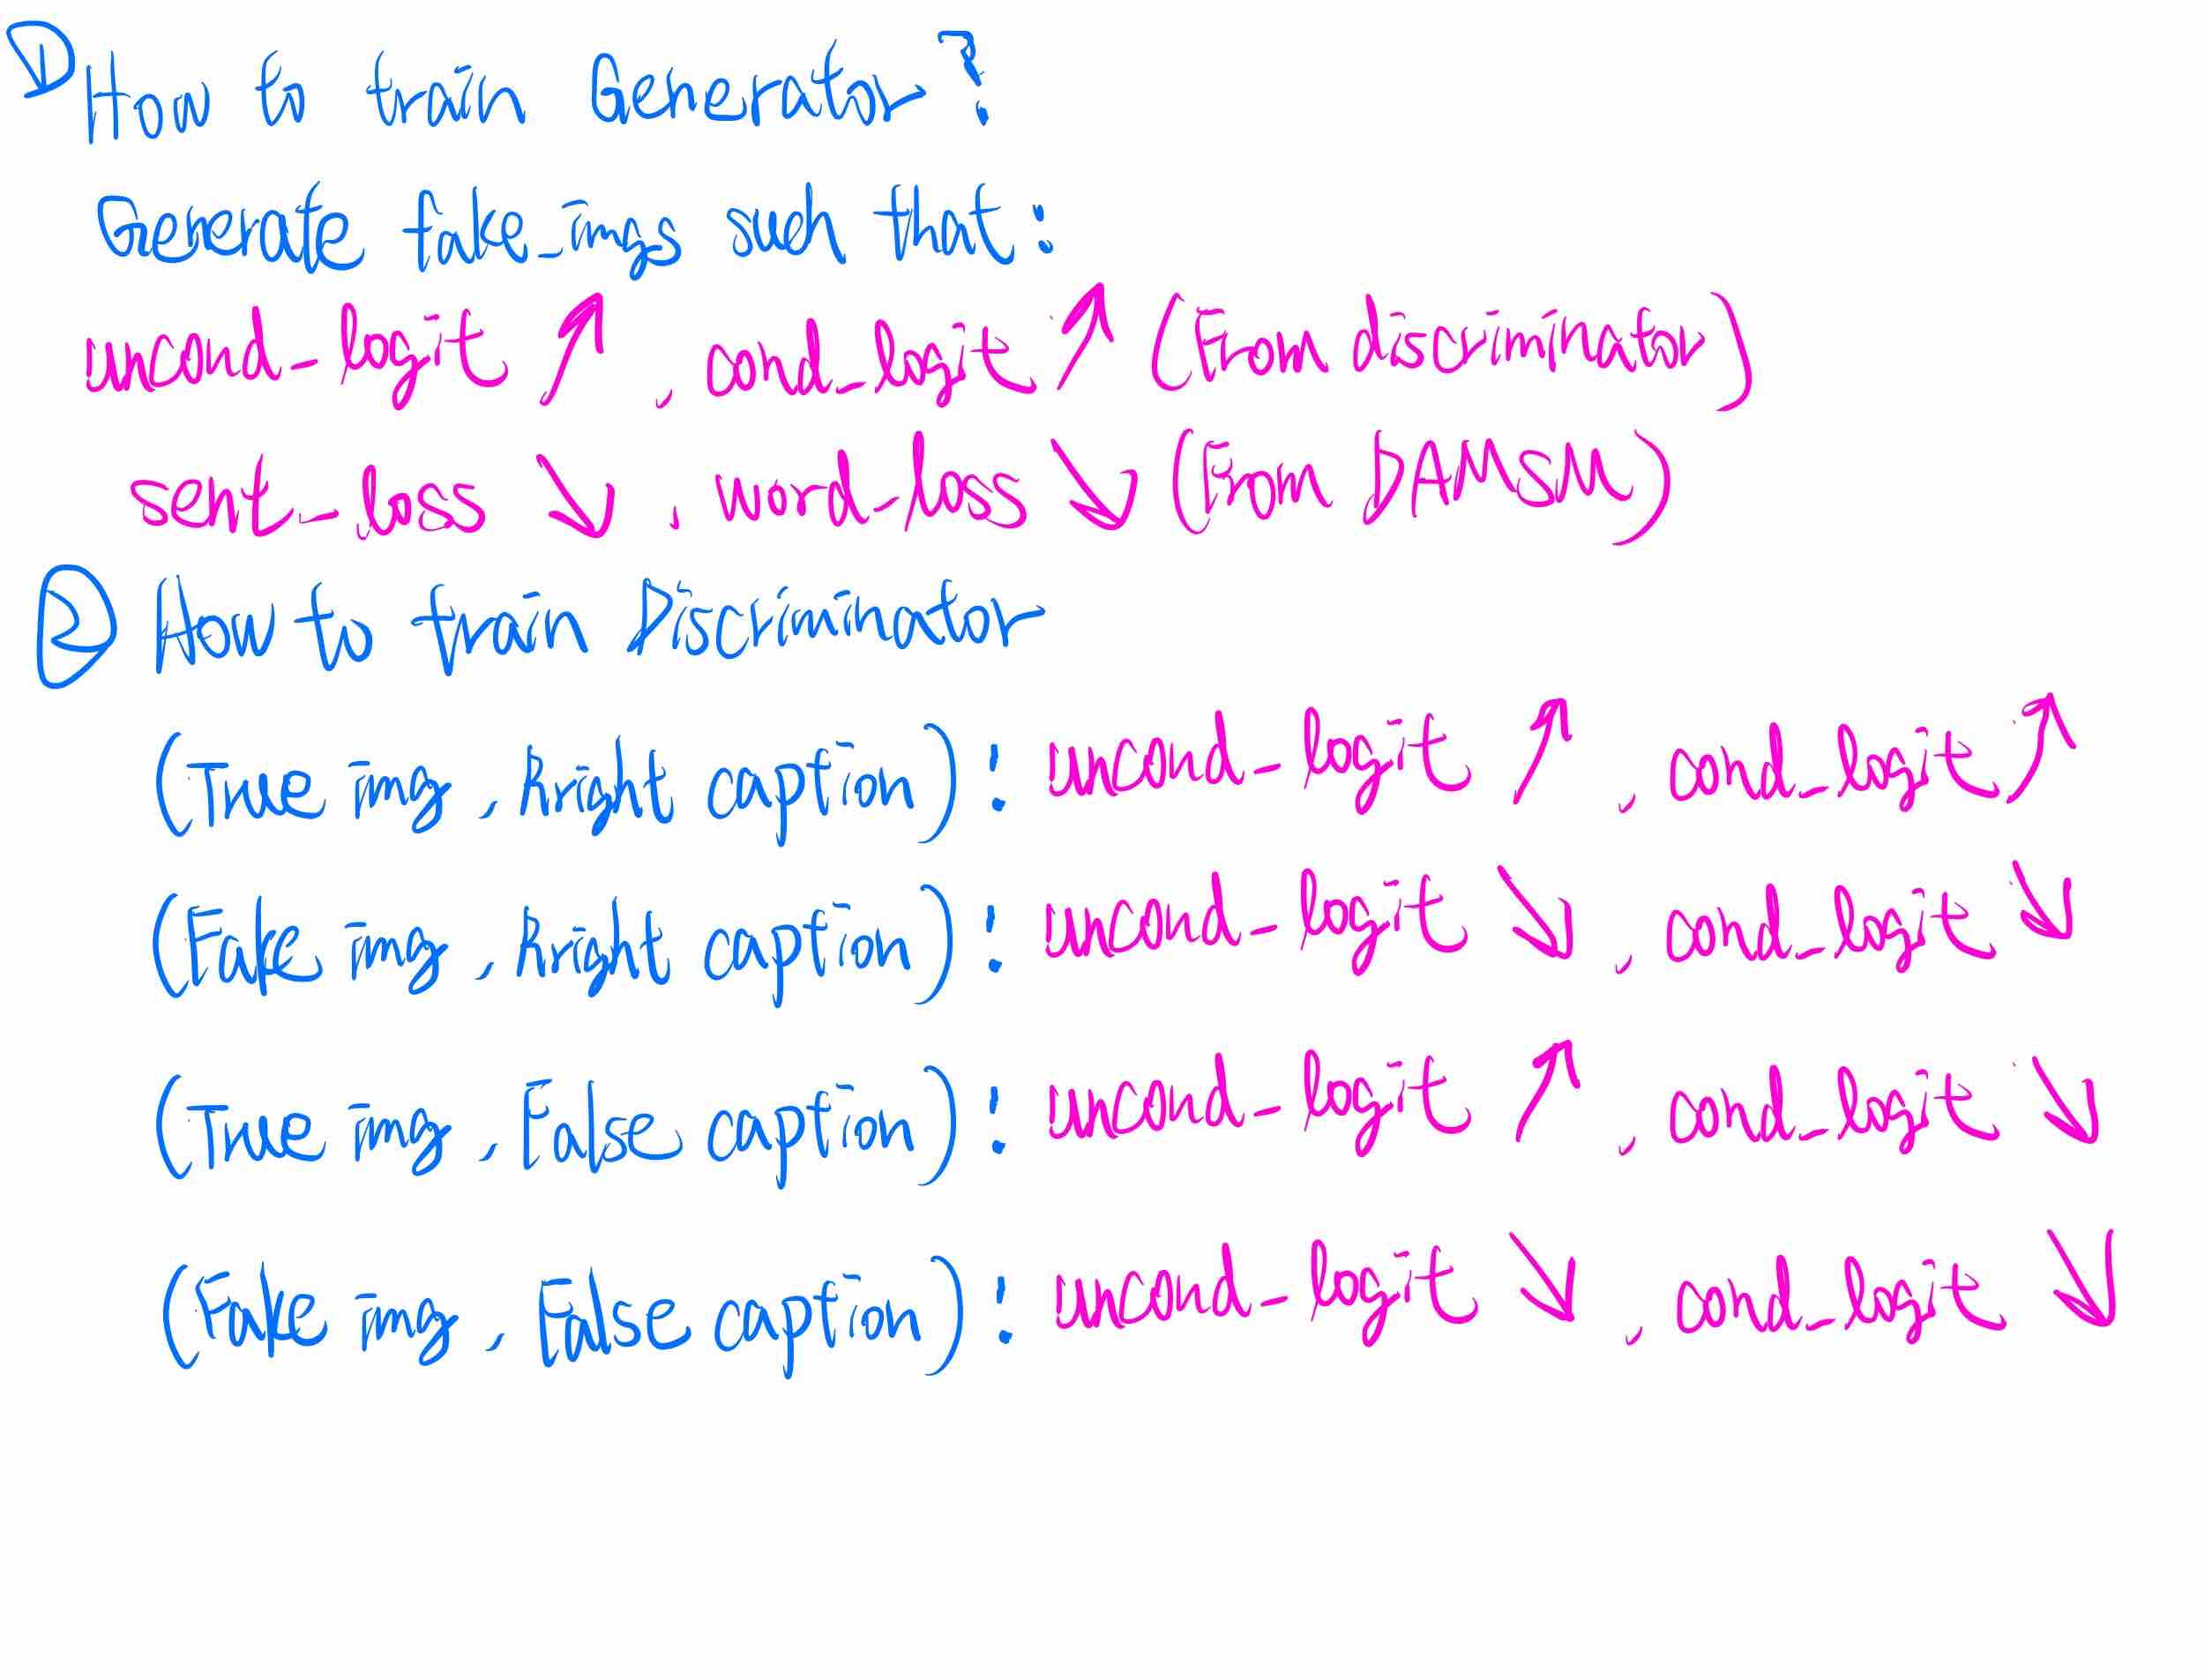 ① How to train Generator?
Generate fake_imgs such that:
uncond_logit ↗, cond_logit ↗ (From discriminator)
sent_loss ↘, word_loss ↘ (From DAMSM)
② How to train Discriminator
(True img, Right caption): uncond_logit ↗, cond_logit ↗
(Fake img, Right caption): uncond_logit ↘, cond_logit ↘
(True img, False caption): uncond_logit ↗, cond_logit ↘
(Fake img, False caption): uncond_logit ↘, cond_logit ↘